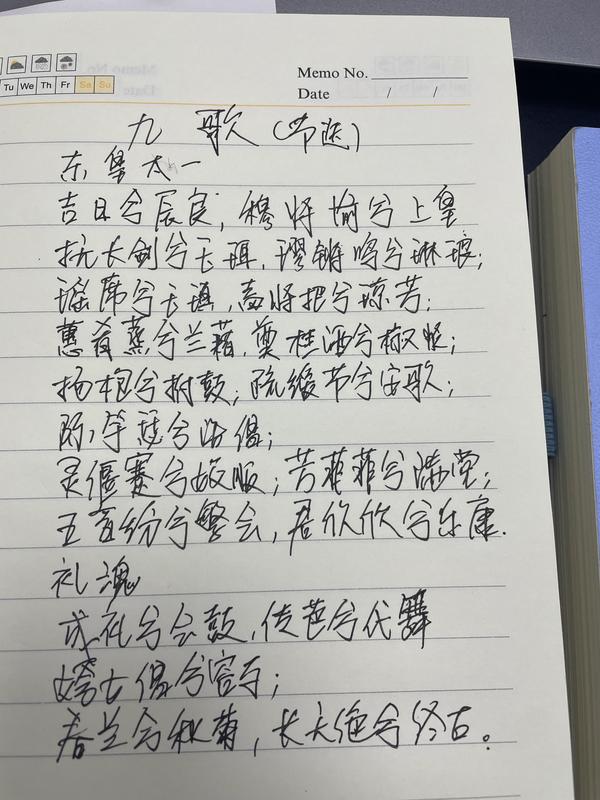 Memo No.
Tu We Th Fr Sa Su
Date / /
九 歌(节选)
东皇太一
吉日兮辰良,穆将愉兮上皇
抚长剑兮玉珥,璆锵鸣兮琳琅;
瑶席兮玉瑱,盍将把兮琼芳;
蕙肴蒸兮兰藉,奠桂酒兮椒浆;
扬枹兮拊鼓;疏缓节兮安歌;
陈竽瑟兮浩倡;
灵偃蹇兮姣服;芳菲菲兮满堂;
五音纷兮繁会,君欣欣兮乐康.
礼魂
成礼兮会鼓,传芭兮代舞
姱女倡兮容与;
春兰兮秋菊,长无绝兮终古。